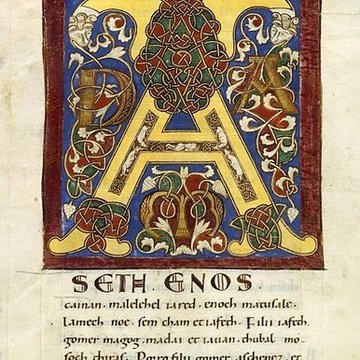 ADAM
SETH ENOS.
cainan. malelehel iared. enoch matusale.
Lamech noe. sem cham et iafeth. Filii iafeth.
gomer magog. madai et iauan. thubal mo
soch thiras. Porro filii gomer. aschenez. et